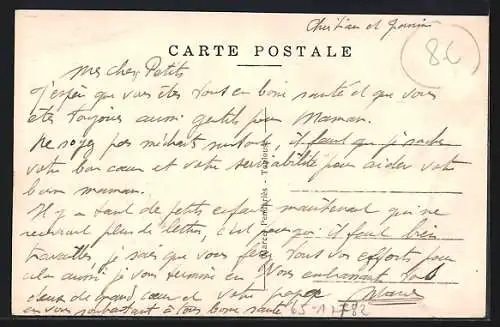 Christian et
CARTE POSTALE
Mes chers Petits
J'espère que vous êtes tous en bonne santé et que vous
êtes toujours aussi gentils pour Maman.
Ne soyez pas méchants surtout, il faut que je sache
votre bon cœur et votre serviabilité pour aider votre
bonne maman.
Il y a tant de petits enfants maintenant qui ne
reçoivent plus de lettres, c'est pourquoi il faut bien
travailler, je sais que vous faites tous vos efforts pour
cela aussi, je vous termine en vous embrassant tous
deux de grand cœur et votre papa
en vous souhaitant à tous bonne santé
65-11782